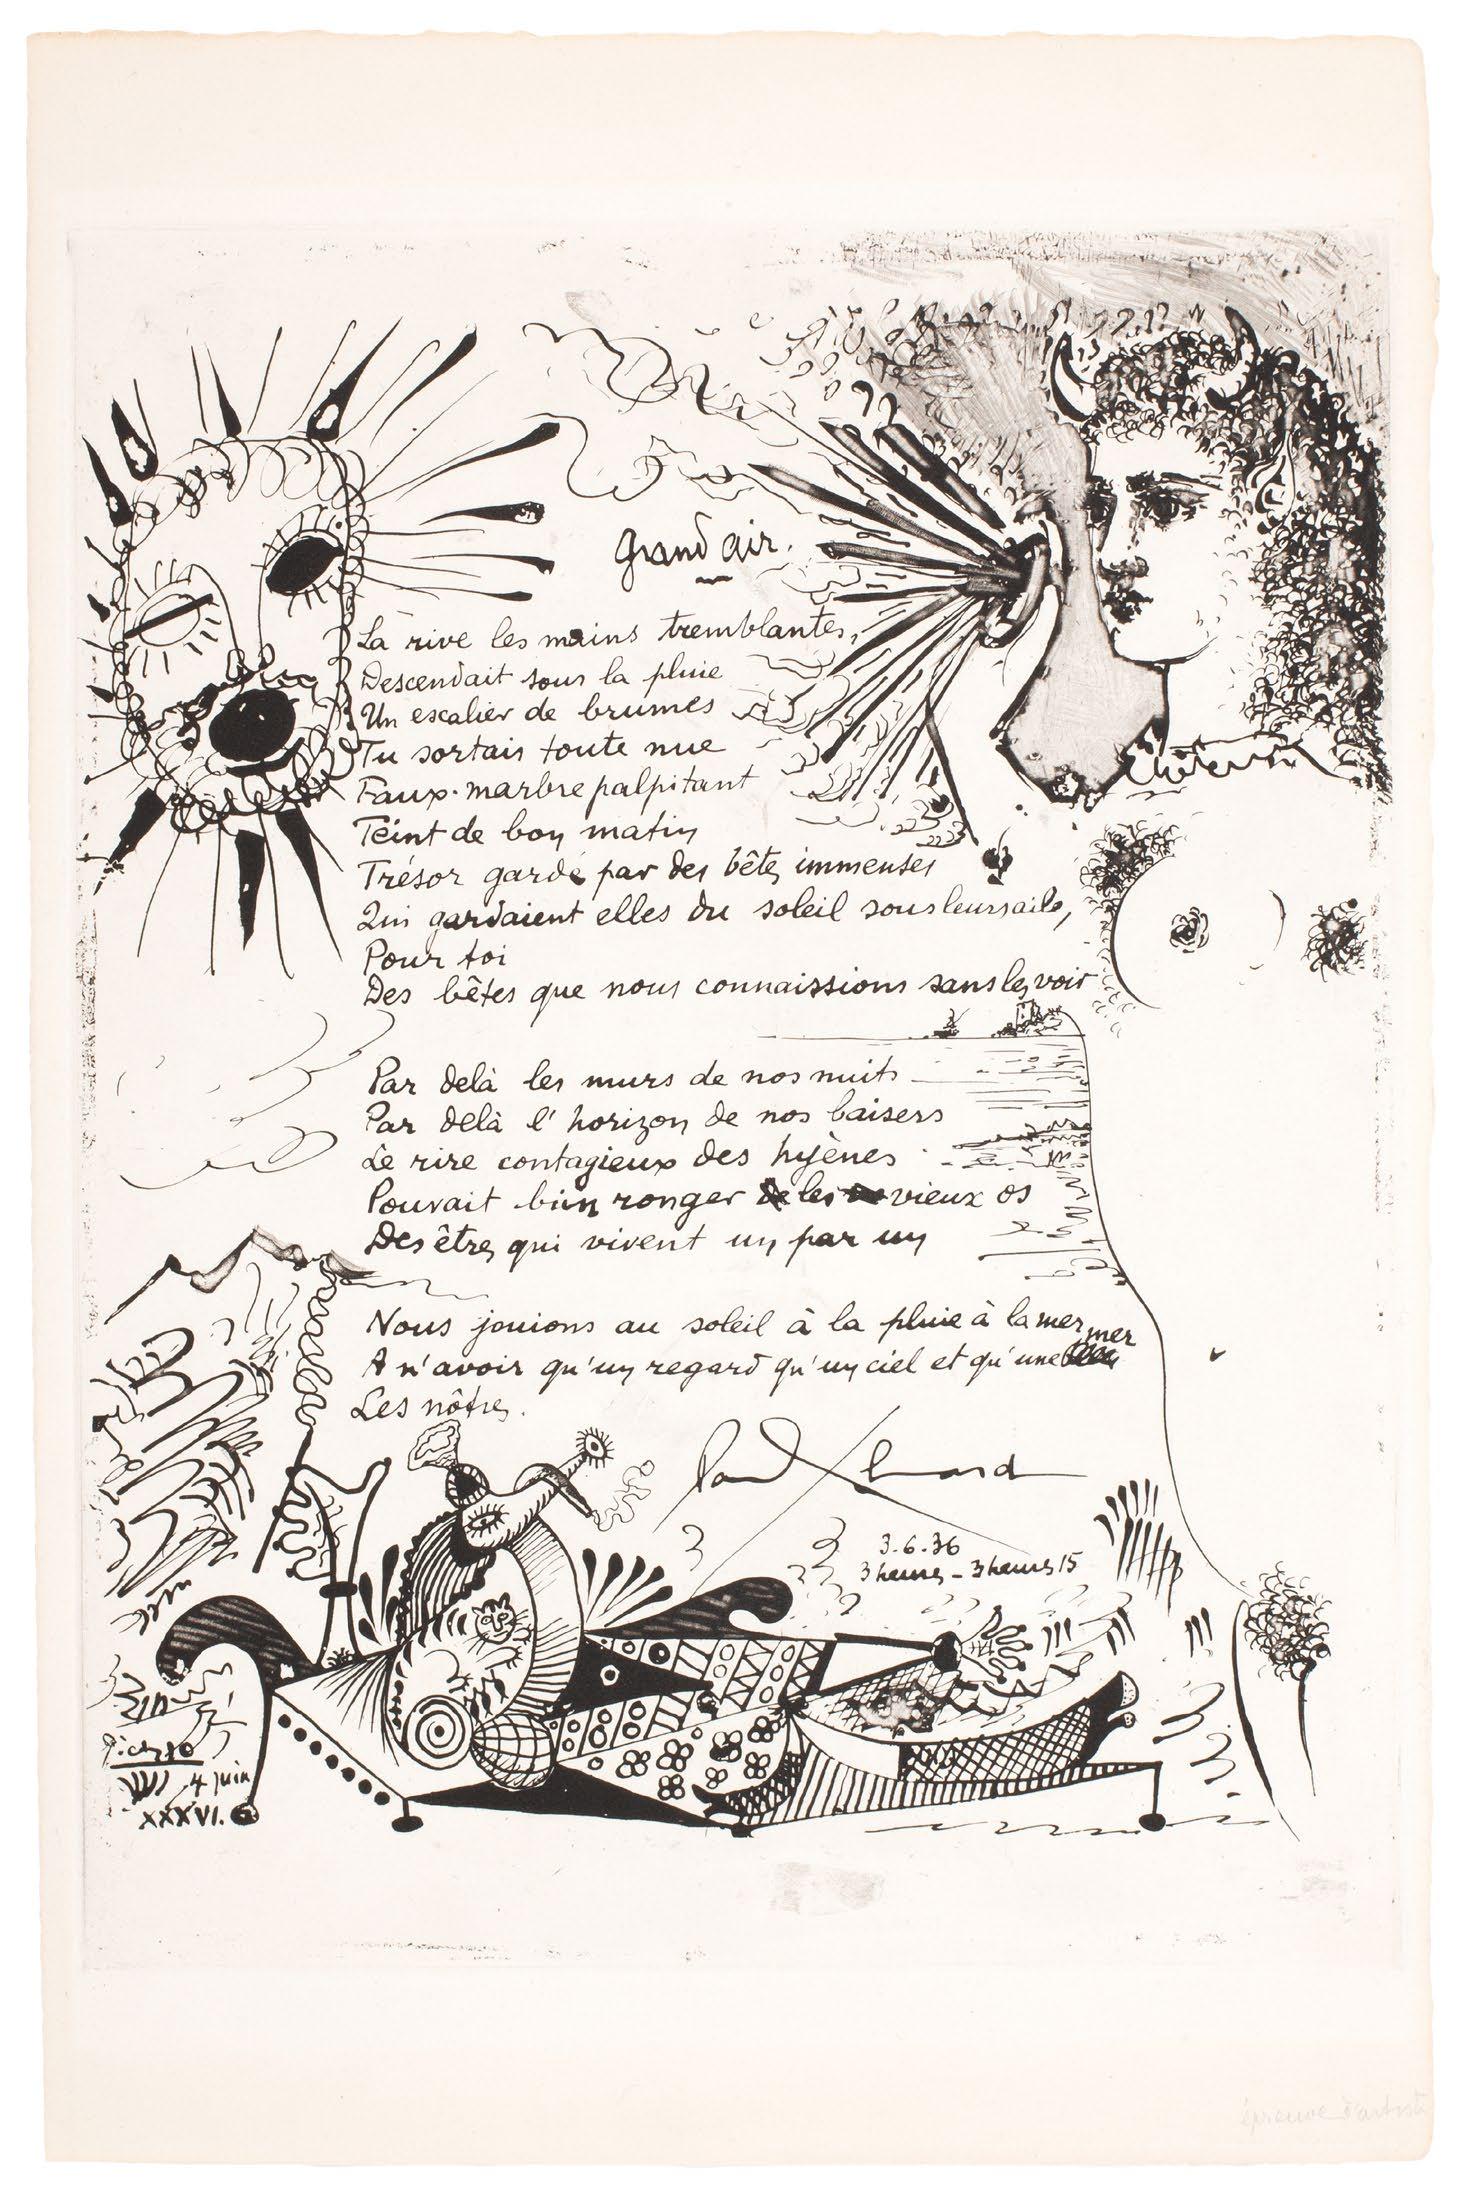 Grand air.
La rive les mains tremblantes,
Descendait sous la pluie
Un escalier de brumes
Tu sortais toute nue
Faux marbre palpitant
Teint de bon matin
Trésor gardé par des bêtes immenses
Qui gardaient elles du soleil sous leurs ailes
Pour toi
Des bêtes que nous connaissions sans les voir
Par delà les murs de nos nuits
Par delà l'horizon de nos baisers
Le rire contagieux des hyènes
Pouvait bien ronger les vieux os
Des êtres qui vivent un par un
Nous jouions au soleil à la pluie à la mer
A n'avoir qu'un regard qu'un ciel et qu'une mer
Les nôtres.
Paul Eluard
3.6.36
3 heures - 3 heures 15
Picasso
4 juin
XXXVI.
épreuve d'artiste